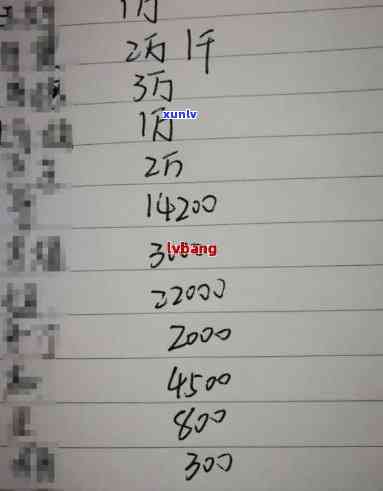 1万
2万1千
3万
1万
xunlv
2万
14200
lvbang
22000
2000
4500
800
300